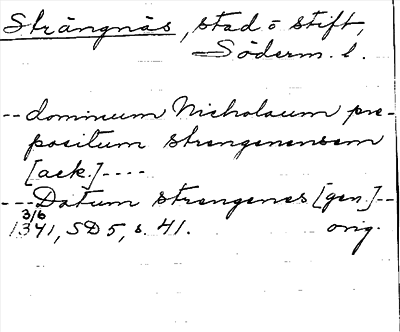 Strängnäs, stad o stift,
Söderm. l.
-- dominum Nicholaum pre-
positum strengenensem
[ack.] ----
--- Datum strengenes [gen.] --
3/6
1341, SD 5, s. 41. orig.